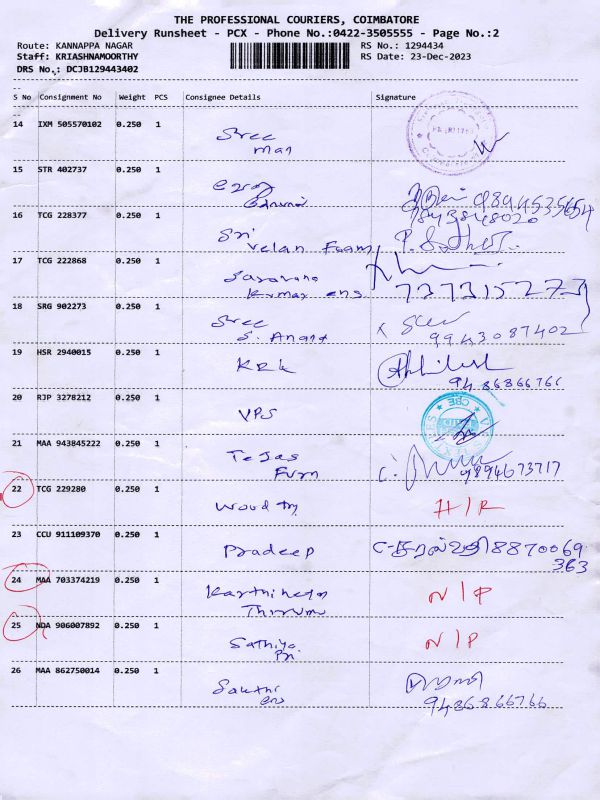 THE PROFESSIONAL COURIERS, COIMBATORE
Delivery Runsheet - PCX - Phone No.:0422-3505555 - Page No.:2
Route: KANNAPPA NAGAR RS No.: 1294434
Staff: KRIASHNAMOORTHY RS Date: 23-Dec-2023
DRS No.: DCJB129443402
S No Consignment No Weight PCS Consignee Details Signature
14 IXM 505570102 0.250 1 Sree
man
15 STR 402737 0.250 1
9894535654
9843848020
16 TCG 228377 0.250 1 Sri
Velan Foam
17 TCG 222868 0.250 1 Saravana
Kumar eng 7373152773
18 SRG 902273 0.250 1 Sree
S. Anand 9943087402
19 HSR 2940015 0.250 1 KRK
9486866766
20 RJP 3278212 0.250 1 VPS
21 MAA 943845222 0.250 1 Tejas
Furn 9894673717
22 TCG 229280 0.250 1 Wood H/R
23 CCU 911109370 0.250 1 Pradeep 8870069
363
24 MAA 703374219 0.250 1 N/P
25 NDA 906007892 0.250 1 Sathiya N/P
26 MAA 862750014 0.250 1 Sakthi
9486866766